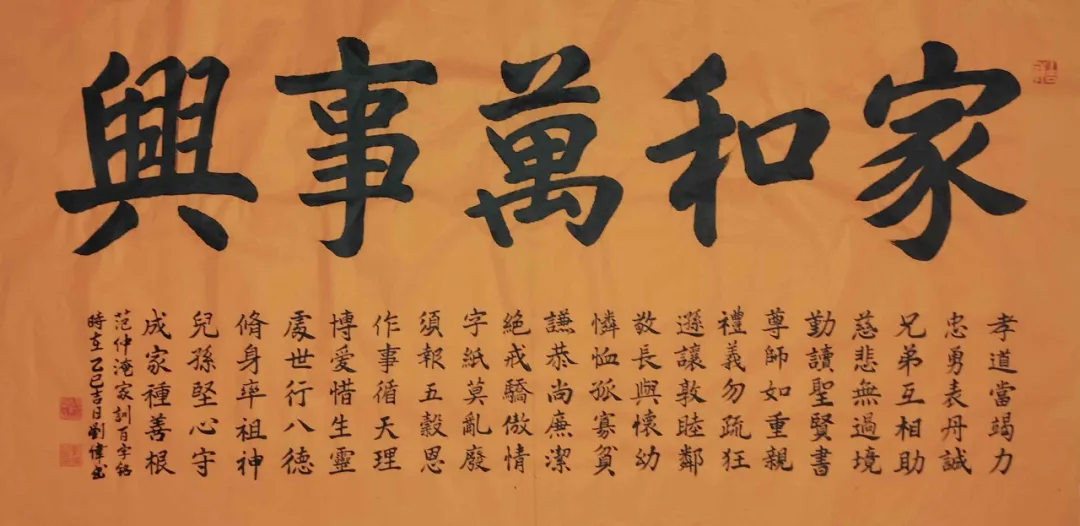 家和萬事興
孝道當竭力
忠勇表丹誠
兄弟互相助
慈悲無過境
勤讀聖賢書
尊師如重親
禮義勿疏狂
遜讓敦睦鄰
敬長與懷幼
憐恤孤寡貧
謙恭尚廉潔
絕戒驕傲情
字紙莫亂廢
須報五穀恩
作事循天理
博愛惜生靈
處世行八德
脩身率祖神
兒孫堅心守
成家種善根
范仲淹家訓百字銘
時在乙巳吉日劉偉書